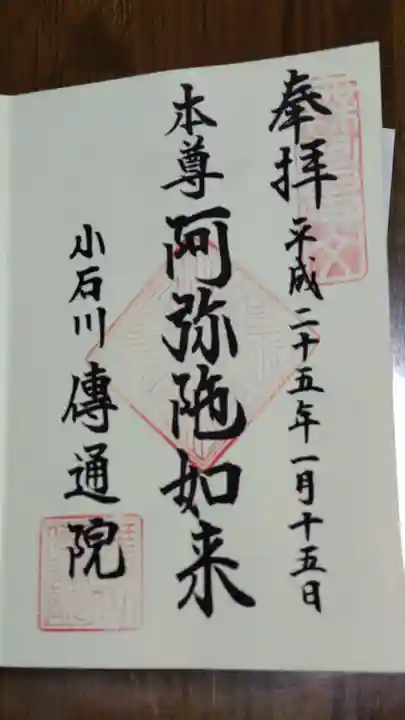 奉拝 平成二十五年一月十五日
本尊 阿弥陀如来
小石川 傳通院